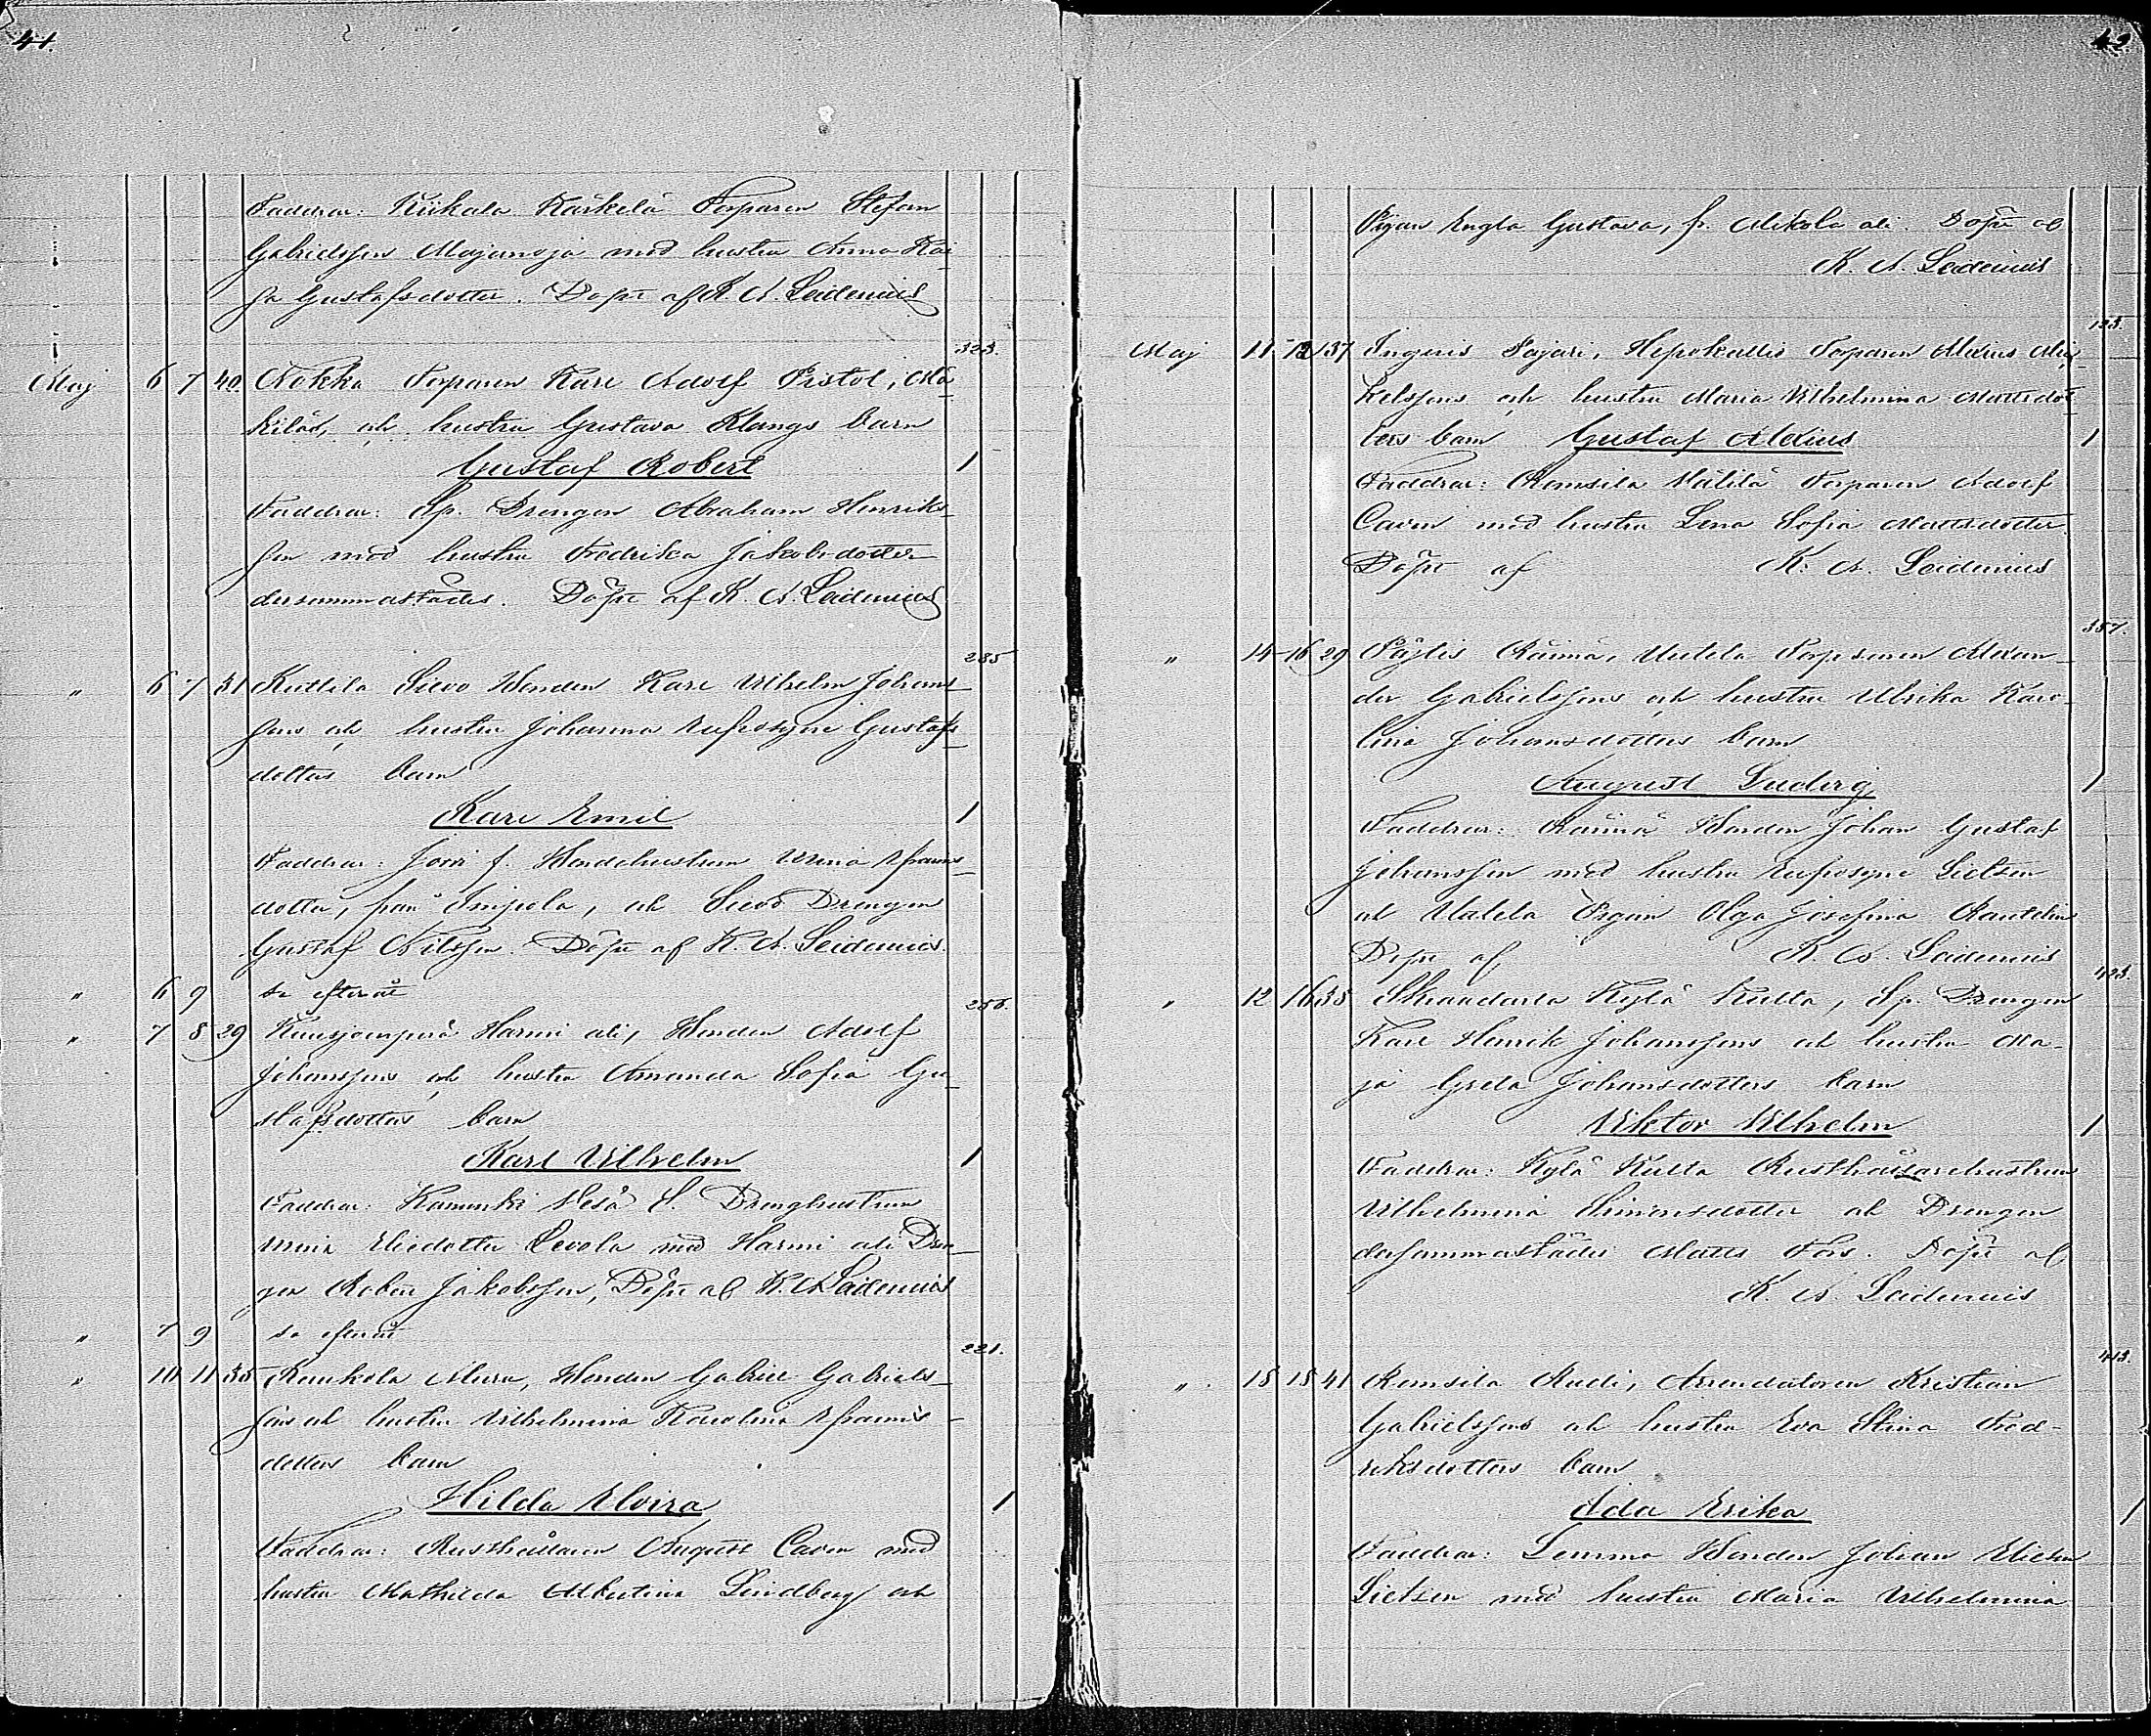 41.
Faddrar: Kiikala Kärkelä Torparen Stefan
Gabrielsson Majanoja med hustru Anna Kai
sa Gustafsdotter. Döpt af K. A. Leidenius
323.
Maj 6 7 40 Nokka Torparen Karl Adolf Pistol, Mä
kilä, och hustru Gustava Klangs barn
Gustaf Robert 1
Faddrar: Sp. Drengen Abraham Henriks-
son med hustru Fredrika Jakobsdotter
dersammastädes. Döpt af K. A. Leidenius
285
" 6 7 31 Kuttila Sievo Bonden Karl Vilhelm Johans-
sons och hustru Johanna Eufrosyne Gustafs
dotters barn
Karl Emil 1
Faddrar: f. Bondehustrun
dotter, från Impola, och Sievo Drengen
Gustaf Nilsson. Döpt af K. A. Leidenius.
" 6 9 se efteråt
256.
" 7 8 29 Kuusjoenperä Harmi ali, Bonden Adolf
Johanssons och hustru Amanda Sofia Gu-
stafsdotters barn
Karl Vilhelm 1
Faddrar: Vesa S. Drenghustrun
Eliedotter med Harmi ali Dren-
gen Robert Jakobsson, Döpt af K. A. Leidenius
" 7 9 se efteråt
221.
" 10 11 35 Raukola Bonden Gabriel Gabriels-
sons och hustru Vilhelmina Karolina Efraims-
dotters barn
Hilda Elvira 1
Faddrar: Rusthållaren August Caven med
hustru Mathilda Albertina Lindberg och
42.
Pigan Engla Gustava, fr. Mikola ali. Döpt af
K. A. Leidenius
123.
Maj 11 12 37 Ingeris Pajari, Hepokallio Torparen Alexius Mi-
kelssons och hustru Maria Vilhelmina Mattsdot
ters barn Gustaf Alexius 1
Faddrar: Romsila Välilä Torparen Adolf
Caven med hustru Lena Sofia Mattsdotter
Döpt af K. A. Leidenius
357.
" 14 16 29 Pöytis Räimä, Uutela Torparen Alexan-
der Gabrielssons och hustru Ulrika Karo-
lina Johansdotters barn
August Ludvig 1
Faddrar: Räimä Bonden Johan Gustaf
Johansson med hustru Eufrosyne Sielzen
och Uutela Pigan Olga Josefina Rautelin
Döpt af K. A. Leidenius
423.
" 12 16 35 Skraddarla Kylä Kulta, Sp. Drengen
Karl Henrik Johanssons och hustru Ma-
ja Greta Johansdotters barn
Viktor Vilhelm 1
Faddrar: Kylä Kulta Rusthållarehustrun
Vilhelmina Simonsdotter och Drengen
dersammastädes Matts Fors. Döpt af
K. A. Leidenius
413.
" 15 18 41 Romsila Ruti, Arrendatoren Kristian
Gabrielssons och hustru Eva Stina Fred-
riksdotters barn
Ida Erika 1
Faddrar: Lemmo Bonden Johan
Sielzen med hustru Maria Vilhelmina